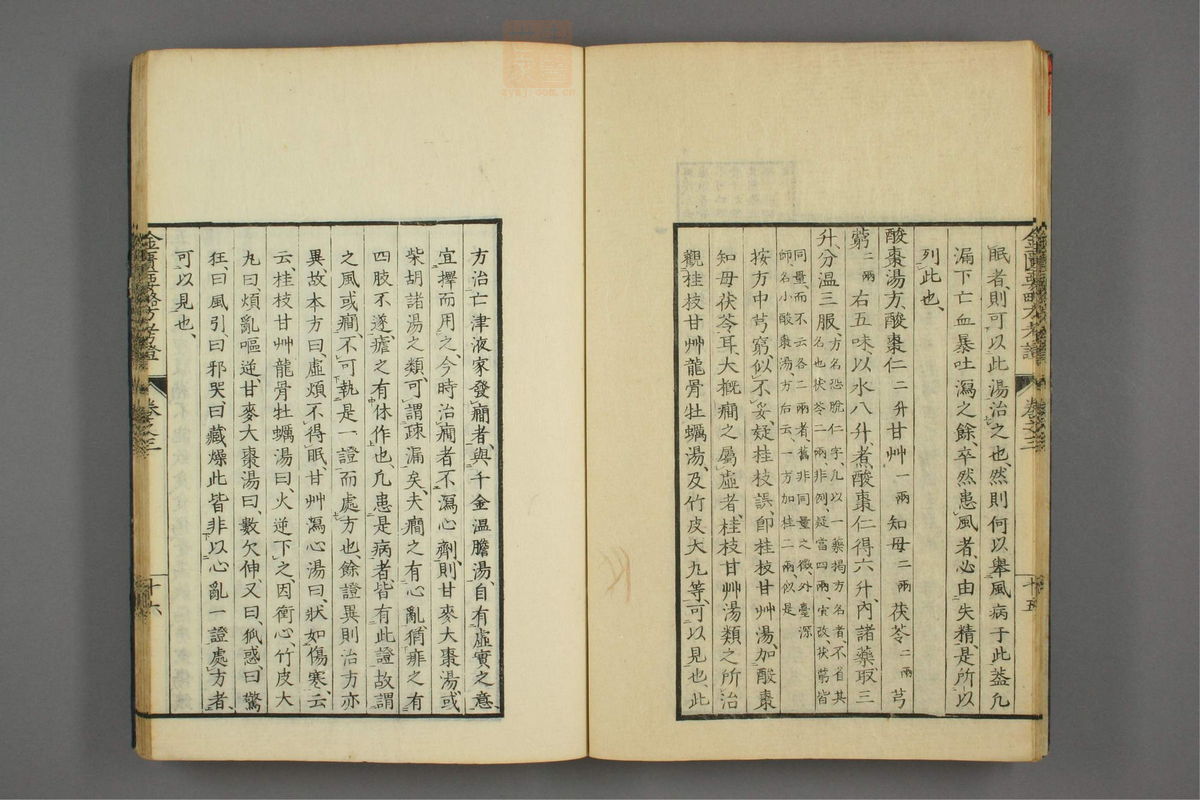 眠者、則可以此湯治之也、然則何以舉風病于此、葢凢
漏下亡血暴吐瀉之餘、卒然患風者、必由失精、是所以
列此也、
酸棗湯方、酸棗仁二升甘艸一兩知母二兩茯苓二兩芎
藭二兩右五味、以水八升、煮酸棗仁得六升、內諸藥取三
升、分溫三服、方名恐脫仁字、凢以一藥揭方名者、不省其
名也、茯苓二兩非例、疑當四兩
同量、而不云各二兩者、舊非同量之徵、外臺深
師、名小酸棗湯、方后云、一方加桂二兩、似是
按方中芎藭、似不妥、疑桂枝誤、卽桂枝甘艸湯、加酸棗
知母茯苓、耳、大概癇之屬虛者、桂枝甘艸湯類之所治
觀桂枝甘艸龍骨牡蠣湯、及竹皮大丸等、可以見也、此
方治亡津液家發癇者、與千金溫膽湯、自有虛實之意、
宜擇而用之、今時治癇者、不瀉心劑、則甘麥大棗湯、或
柴胡諸湯之類、可謂疎漏矣、夫癇之有心亂、猶痱之有
四肢不遂、瘧之有休作也、凢患是病者、皆有此證、故謂
之風或癇、不可執是一證而處方也、餘證異則治方亦
異、故本方曰、虛煩不得眠、甘艸瀉心湯曰、狀如傷寒、云
云、桂枝甘艸龍骨牡蠣湯曰火逆下之、因衝心、竹皮大
丸曰、煩亂嘔逆、甘麥大棗湯曰、數欠伸、又曰、狐惑、曰驚
狂、曰風引、曰邪哭、曰藏燥、此皆非以心亂一證處方者、
可以見也、
金匱要略方考證
卷之二
十五
十六